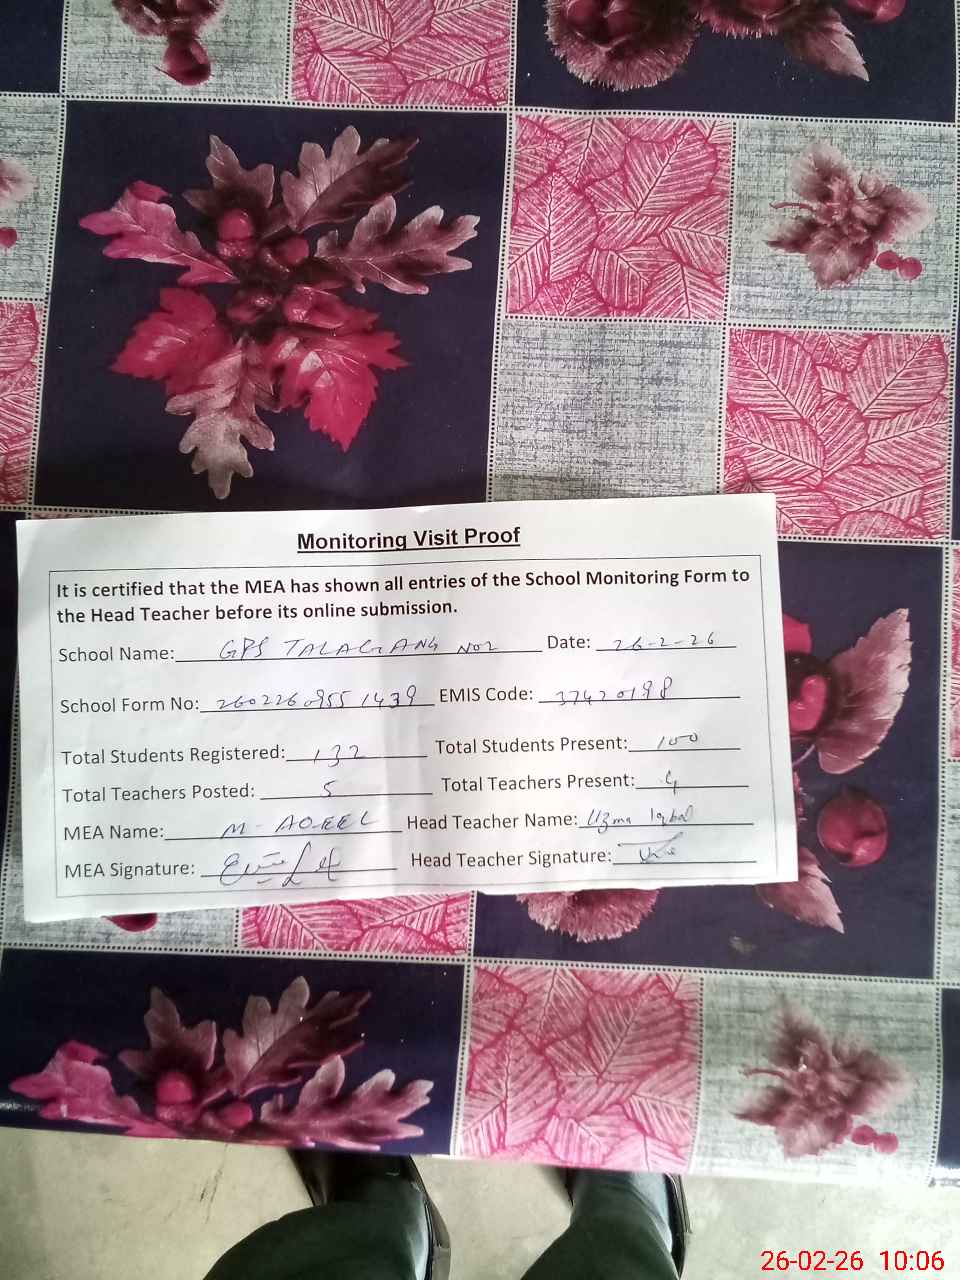 Monitoring Visit Proof
It is certified that the MEA has shown all entries of the School Monitoring Form to
the Head Teacher before its online submission.
School Name: GPS TALAGANG NO2 Date: 26-2-26
School Form No: 26022609551439 EMIS Code: 37420198
Total Students Registered: 132 Total Students Present: 100
Total Teachers Posted: 5 Total Teachers Present: 4
MEA Name: M- AQEEL Head Teacher Name: Uzma Iqbal
MEA Signature: Head Teacher Signature:
26-02-26 10:06